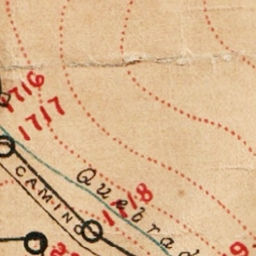 1716
1717
CAMINO
Quebrad
1718